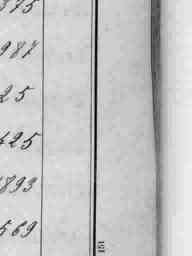 375
987
25
425
893
569
151